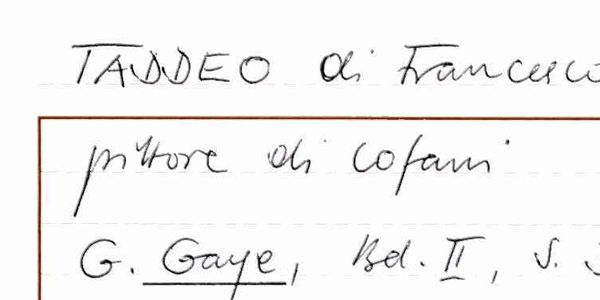 TADDEO di Francesco
pittore di Cofani
G. Gaye, Bd. II, S. 3